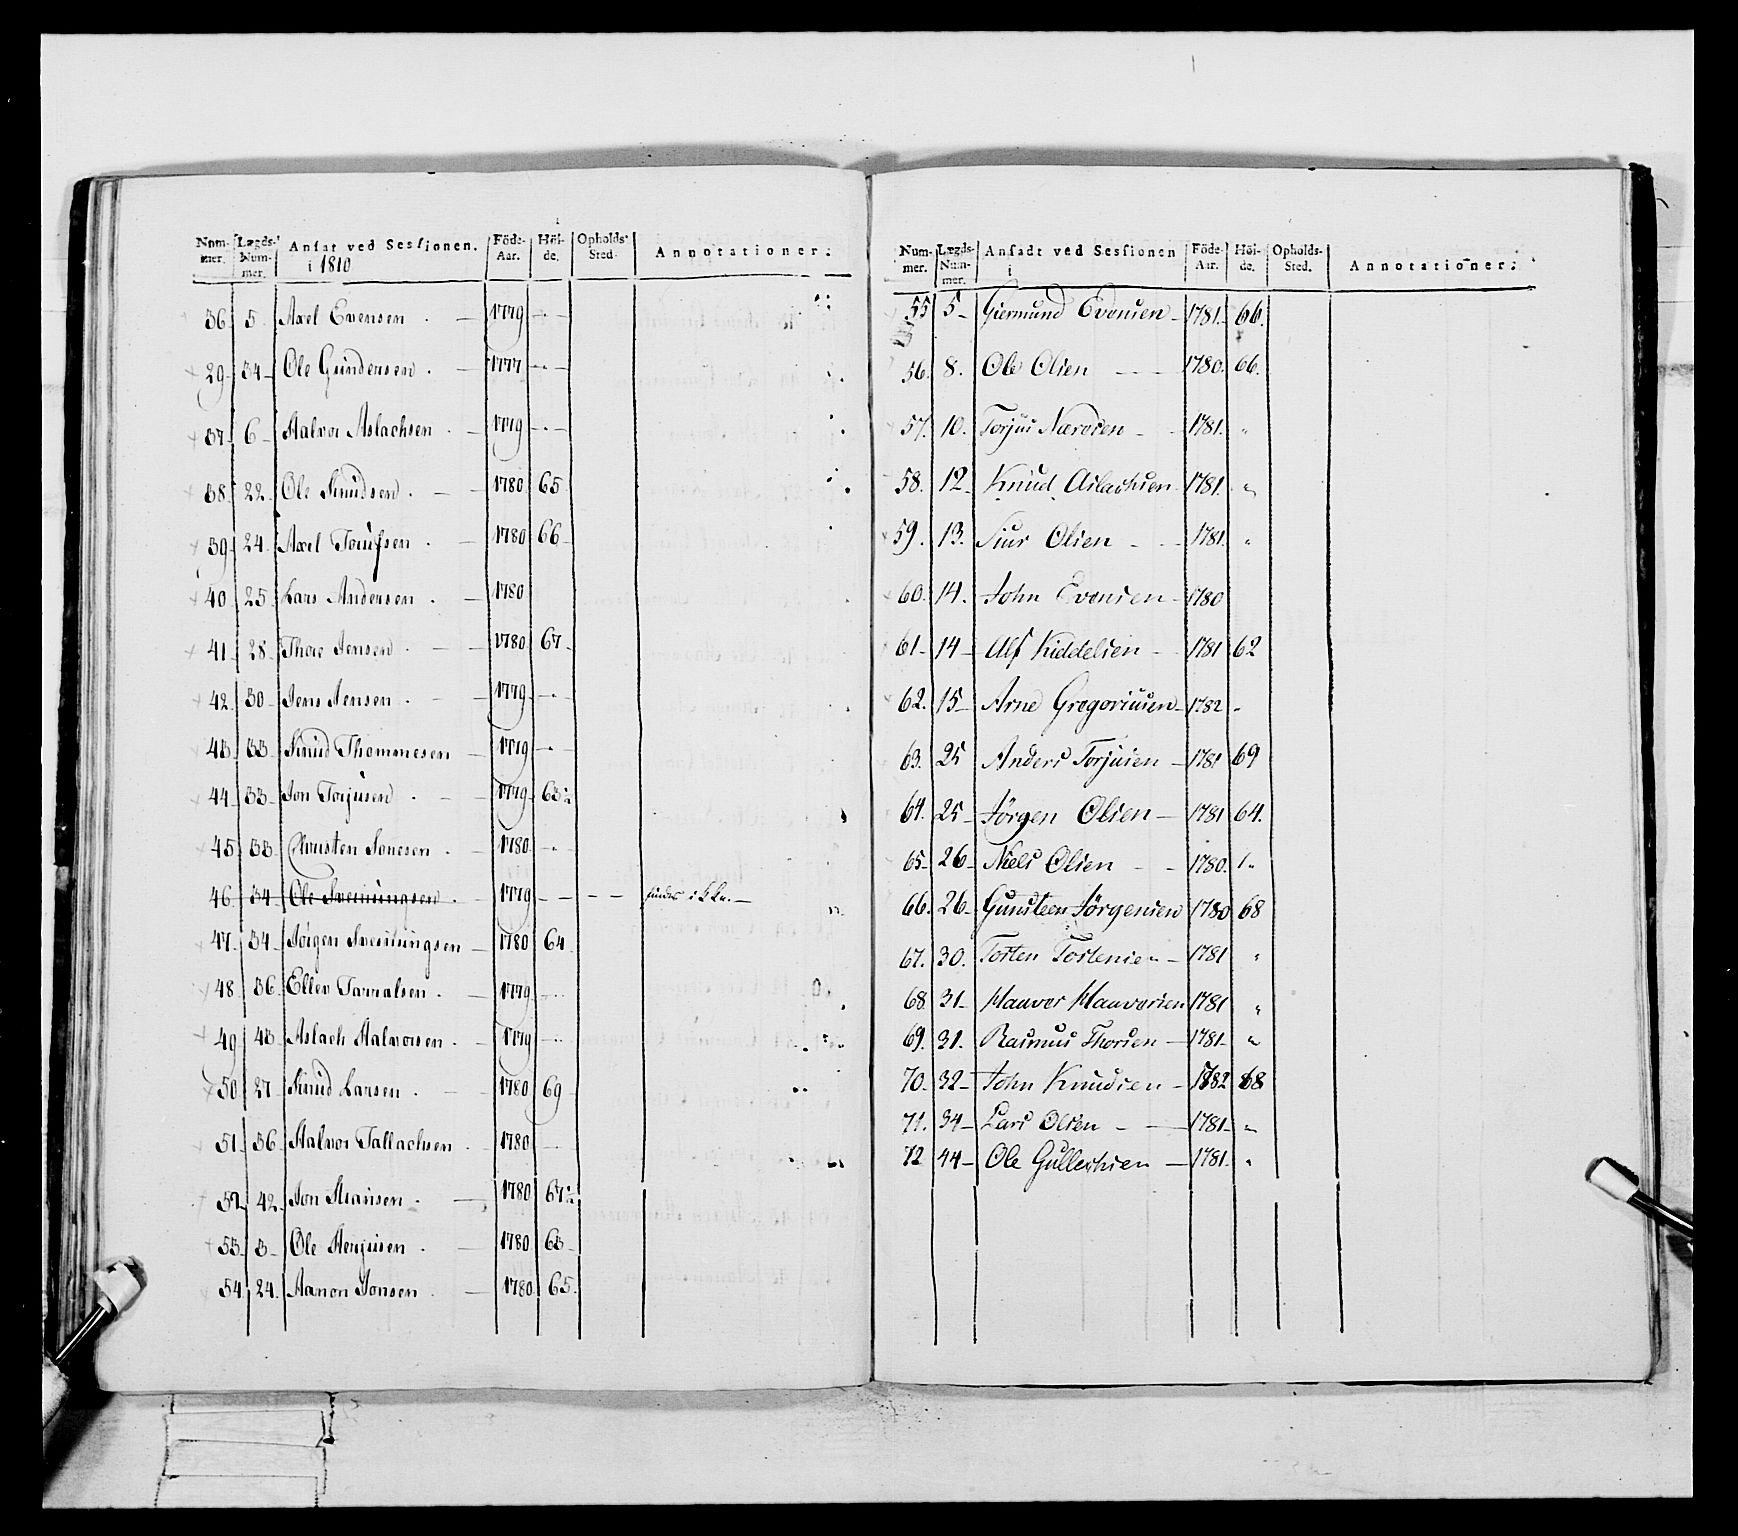 Num-mer. Lægds-Num-mer. Ansat ved Sessionen. i 1810 Föde-Aar. Höi-de. Opholds-Sted. Annotationer.
36. 5. Axel Evensen . — 1779 — . —
29. 34 — Ole Gundersen . — 1777 — . —
37. 6 — Halvor Aslachsen . — 1779 — . —
38. 22. Ole Knudsen . — — 1780 65
39. 24. Axel Toufsen . — 1780 66 —
40. 25. Lars Andersen . — 1780
41. 28. Thore Jensen . — — 1780 67 —
42. 30 — Jens Jensen . — — 1779 — . —
43. 33. Knud Thommesen — 1779 — . —
44. 33 — Jon Torjusen . — — 1779 63½
45. 33. Christen Jonesen . — 1780 — . —
46. 34 — Ole Sveinungsen . — 1779 — — — — findes ikke. —
47. 34 — Jörgen Sveinungsen — 1780 64
48. 36. Ellev Tarralsen . — 1779 — . .
49. 43. Aslach Halvorsen . — 1779 — . .
50. 27 Knud Larsen . — — 1780 69 —
51. 36. Halvor Tallachsen . 1780 —
52. 42. Jon . — 1780 67½
53. 3 — Ole . — 1780 63 —
54. 24. Aanon Jonsen . — 1780 65.
Num-mer. Lægds-Num-mer. Ansadt ved Sessionen i Föde-Aar. Höi-de. Opholds-Sted. Annotationer.
55 5 — Giermund Evensen — 1781. 66.
56. 8. Ole Olsen — — 1780. 66.
57. 10. Torjus Nærvsen — 1781. "
58. 12. Knud Aslachsen 1781. "
59. 13. Siur Olsen — — 1781. "
60. 14. John Evensen — 1780
61 — 14 — Alf Kiddelsen — 1781 62
62. 15 — Arne Gregoriusen — 1782 "
63. 25 Anders Torjusen — 1781 69
64. 25 — Jörgen Olsen — 1781 64.
65 — 26 — Niels Olsen — — 1780. "
66. 26 — Gunsteen Jörgensen 1780 68
67. 30. Tosten Tostensen — 1781 "
68. 31 — Haavor Haavorsen 1781 "
69. 31. Rasmus Thorsen — 1781 — "
70. 32 — John Knudsen — 1782 68
71. 34 — Lars Olsen — — 1781 — "
72 44 — Ole Gullechsen — 1781. "